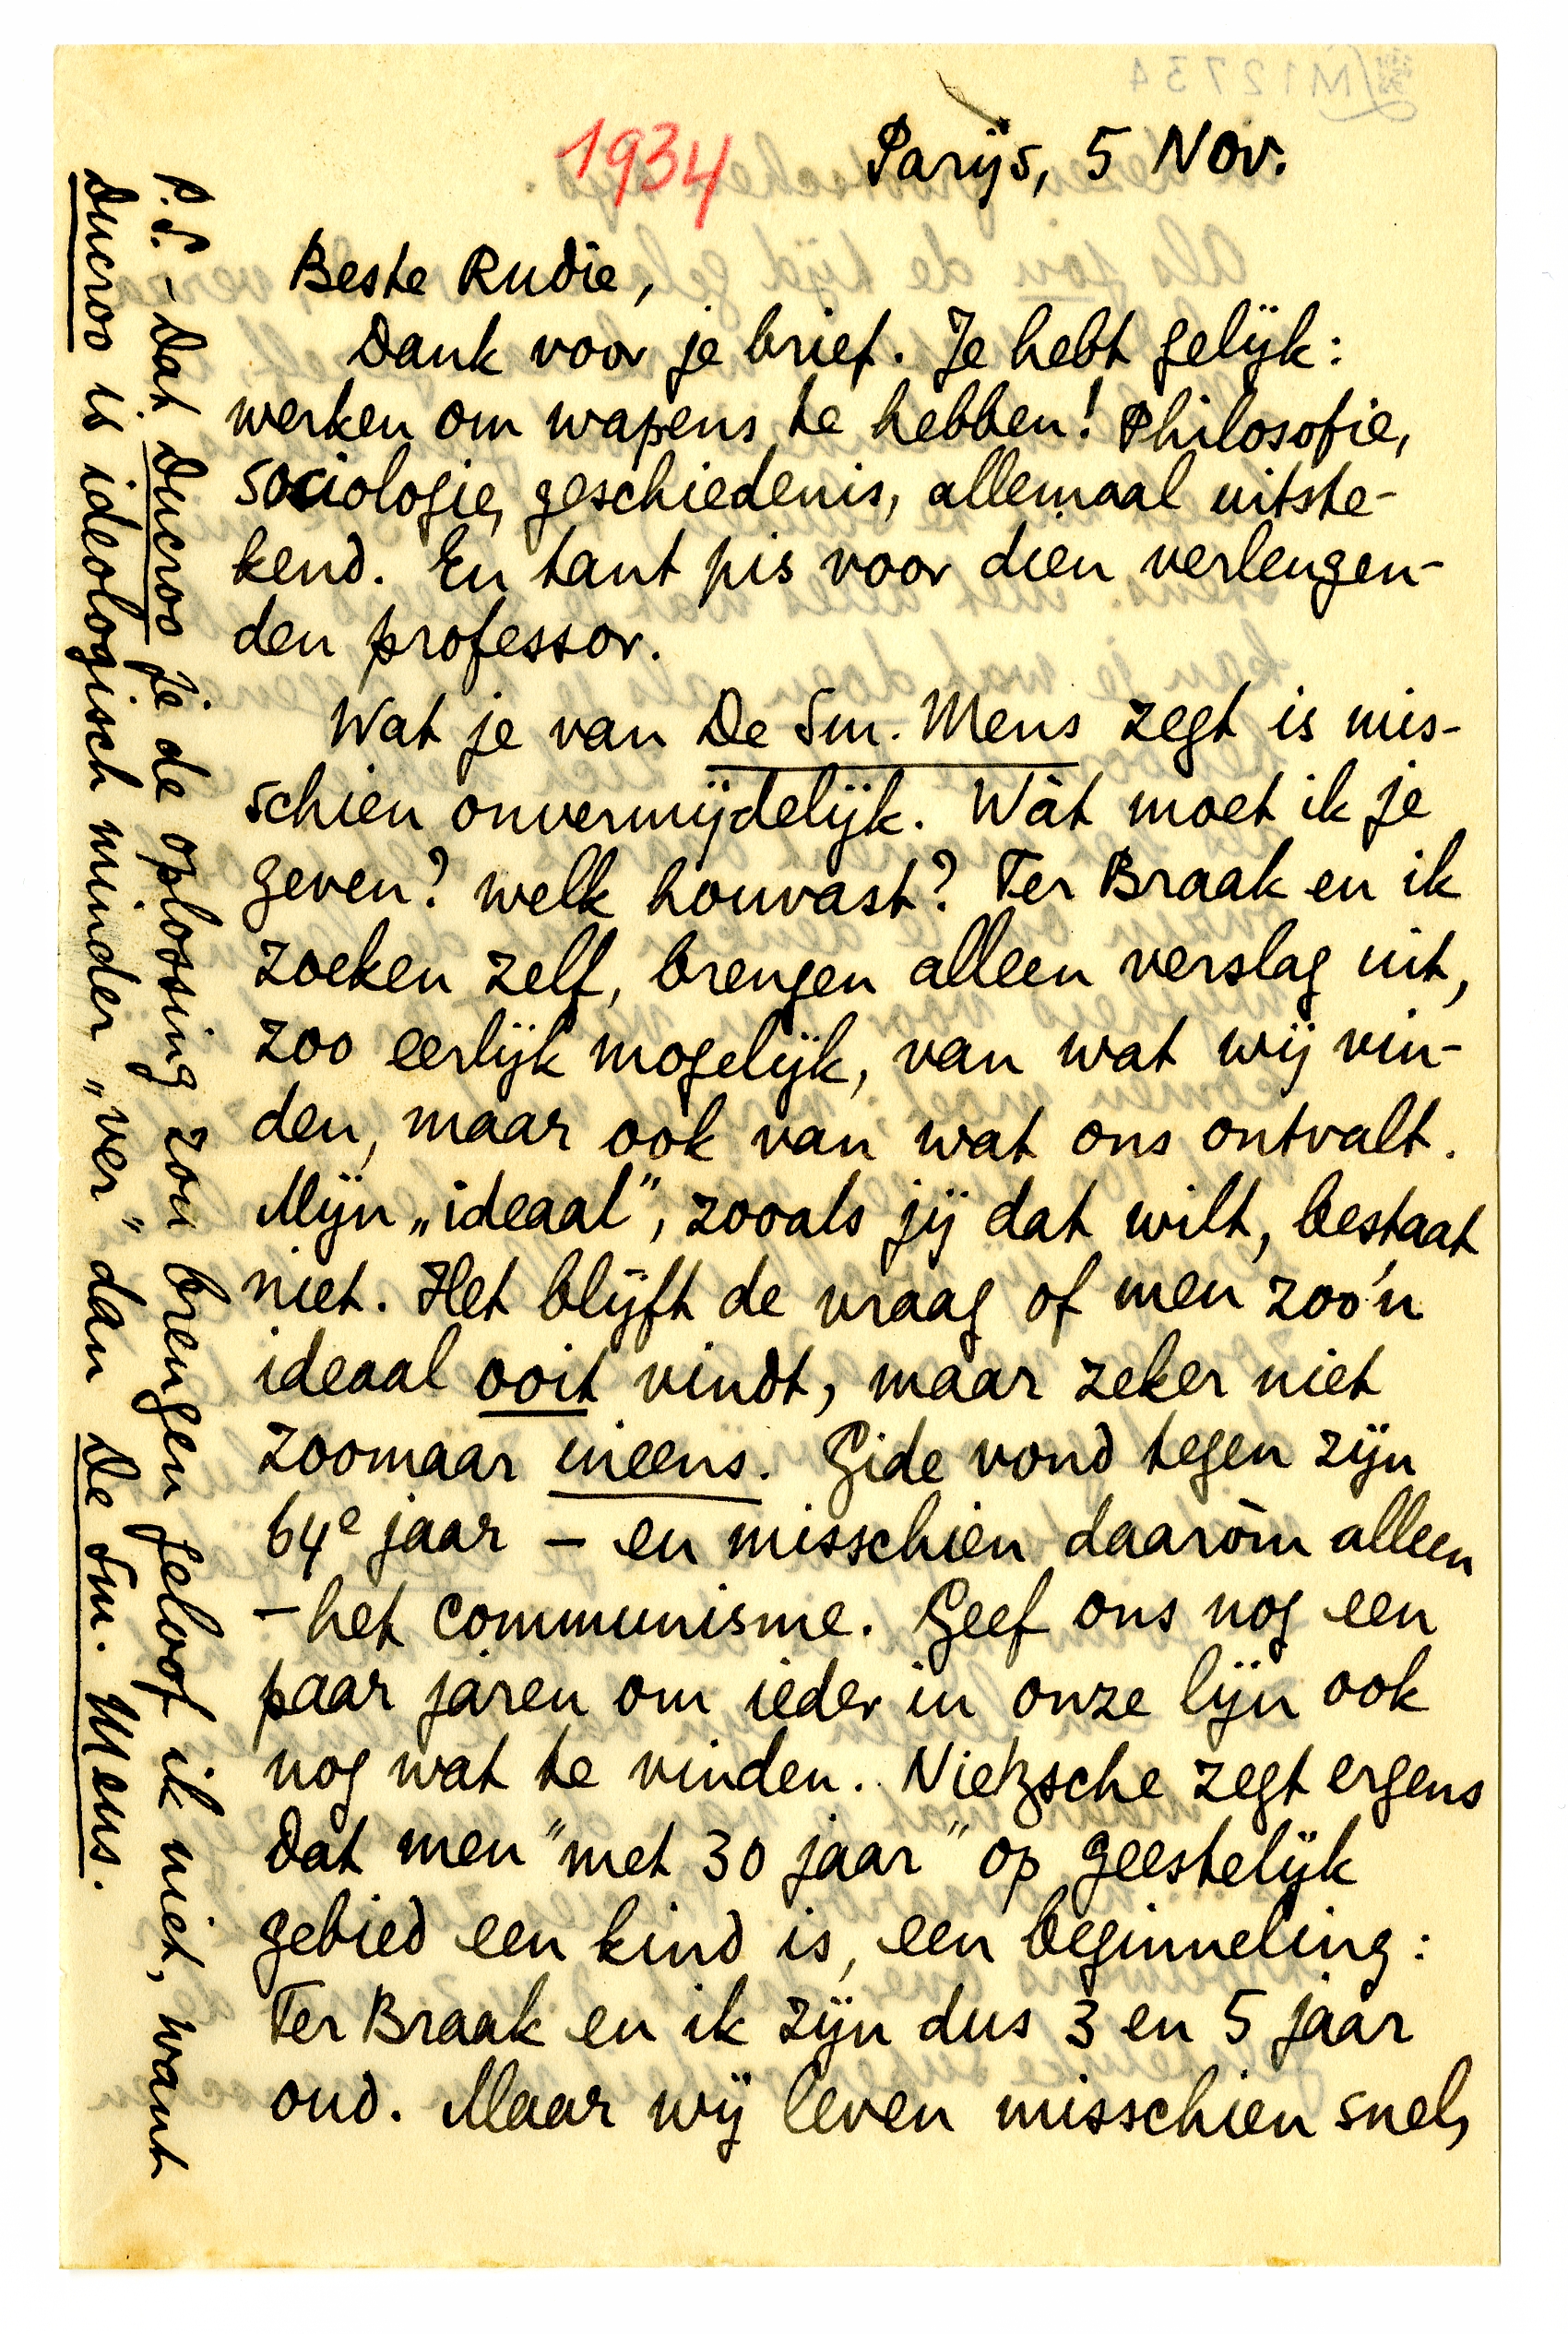 M12734
1934
Parijs, 5 Nov.
Beste Rudie,
Dank voor je brief. Je hebt gelijk:
werken om wapens te hebben! Philosofie,
sociologie, geschiedenis, allemaal uitste-
kend. En tant pis voor dien verlengen-
den professor.
Wat je van De Sm. Mens zegt is mis-
schien onvermijdelijk. Wàt moet ik je
geven? welk houvast? Ter Braak en ik
zoeken zelf, brengen alleen verslag uit,
zoo eerlijk mogelijk, van wat wij vin-
den, maar ook van wat ons ontvalt.
Mijn „ideaal”, zooals jij dat wilt, bestaat
niet. Het blijft de vraag of men zoo'n
ideaal ooit vindt, maar zeker niet
zoomaar ineens. Gide vond tegen zijn
64e jaar – en misschien daaròm alleen
– het communisme. Geef ons nog een
paar jaren om ieder in onze lijn ook
nog wat te vinden. Nietzsche zegt ergens
dat men "met 30 jaar" op geestelijk
gebied een kind is, een beginneling:
Ter Braak en ik zijn dus 3 en 5 jaar
oud. Maar wij leven misschien snel,
P.S. – Dat Ducroo je de oplossing zou brengen geloof ik niet, want
Ducroo is ideologisch minder „ver” dan De Sm. Mens.